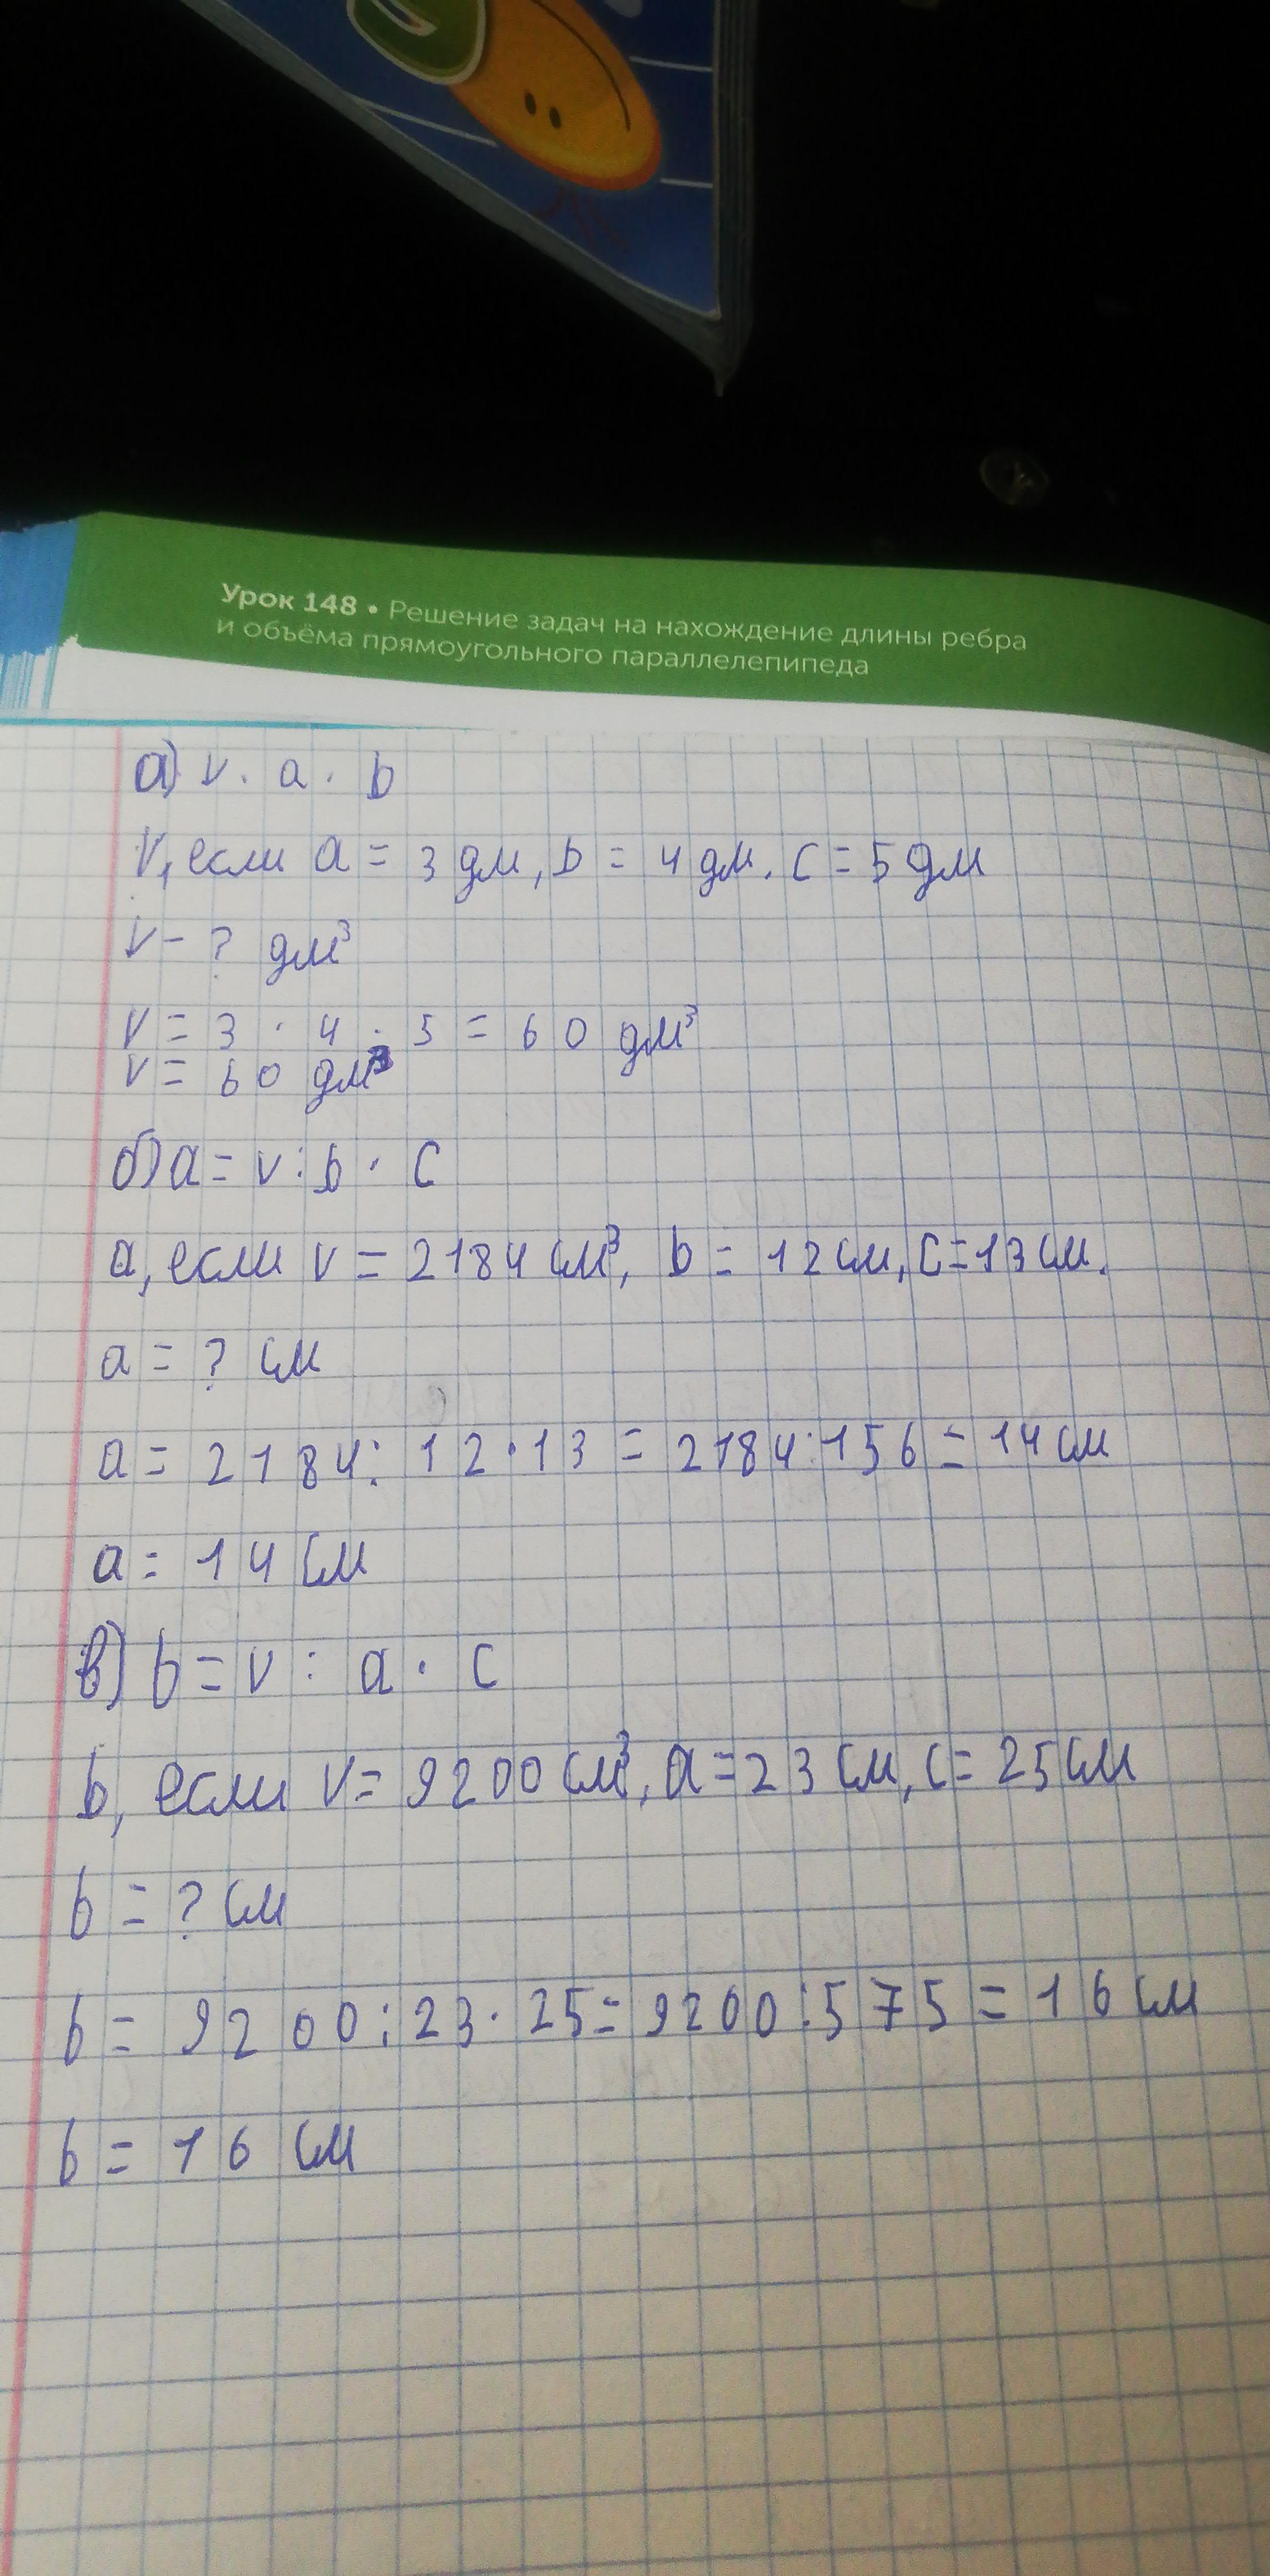 Урок 148 • Решение задач на нахождение длины ребра
и объёма прямоугольного параллелепипеда
а) v · a · b
V, если a = 3 дм, b = 4 дм. c = 5 дм
V - ? дм³
V = 3 · 4 · 5 = 60 дм³
V = 60 дм³
б) a = v : b · c
a, если v = 2184 см³, b = 12 см, c = 13 см.
a = ? см
a = 2184 : 12 · 13 = 2184 : 156 = 14 см
a = 14 см
в) b = v : a · c
b, если v = 9200 см³, a = 23 см, c = 25 см
b = ? см
b = 9200 : 23 · 25 = 9200 : 575 = 16 см
b = 16 см